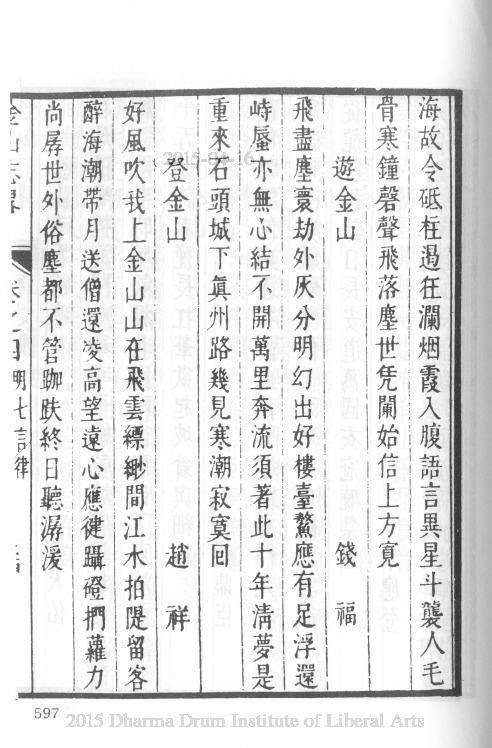 海故令砥柱遏狂瀾烟霞入腹語言異星斗襲人毛
骨寒鐘磬聲飛落塵世凭闌始信上方寬
遊金山 錢福
飛盡塵寰劫外灰分明幻出好樓臺鰲應有足浮還
峙蜃亦無心結不開萬里奔流須著此十年淸夢是
重來石頭城下眞州路幾見寒潮寂寞回
登金山 趙祥
好風吹我上金山山在飛雲縹緲間江水拍隄留客
醉海潮帶月送僧還凌高望遠心應健躡磴捫蘿力
尚孱世外俗塵都不管跏趺終日聽潺湲
金山志畧 卷之四 明七言律
597
2015 Dharma Drum Institute of Liberal Arts